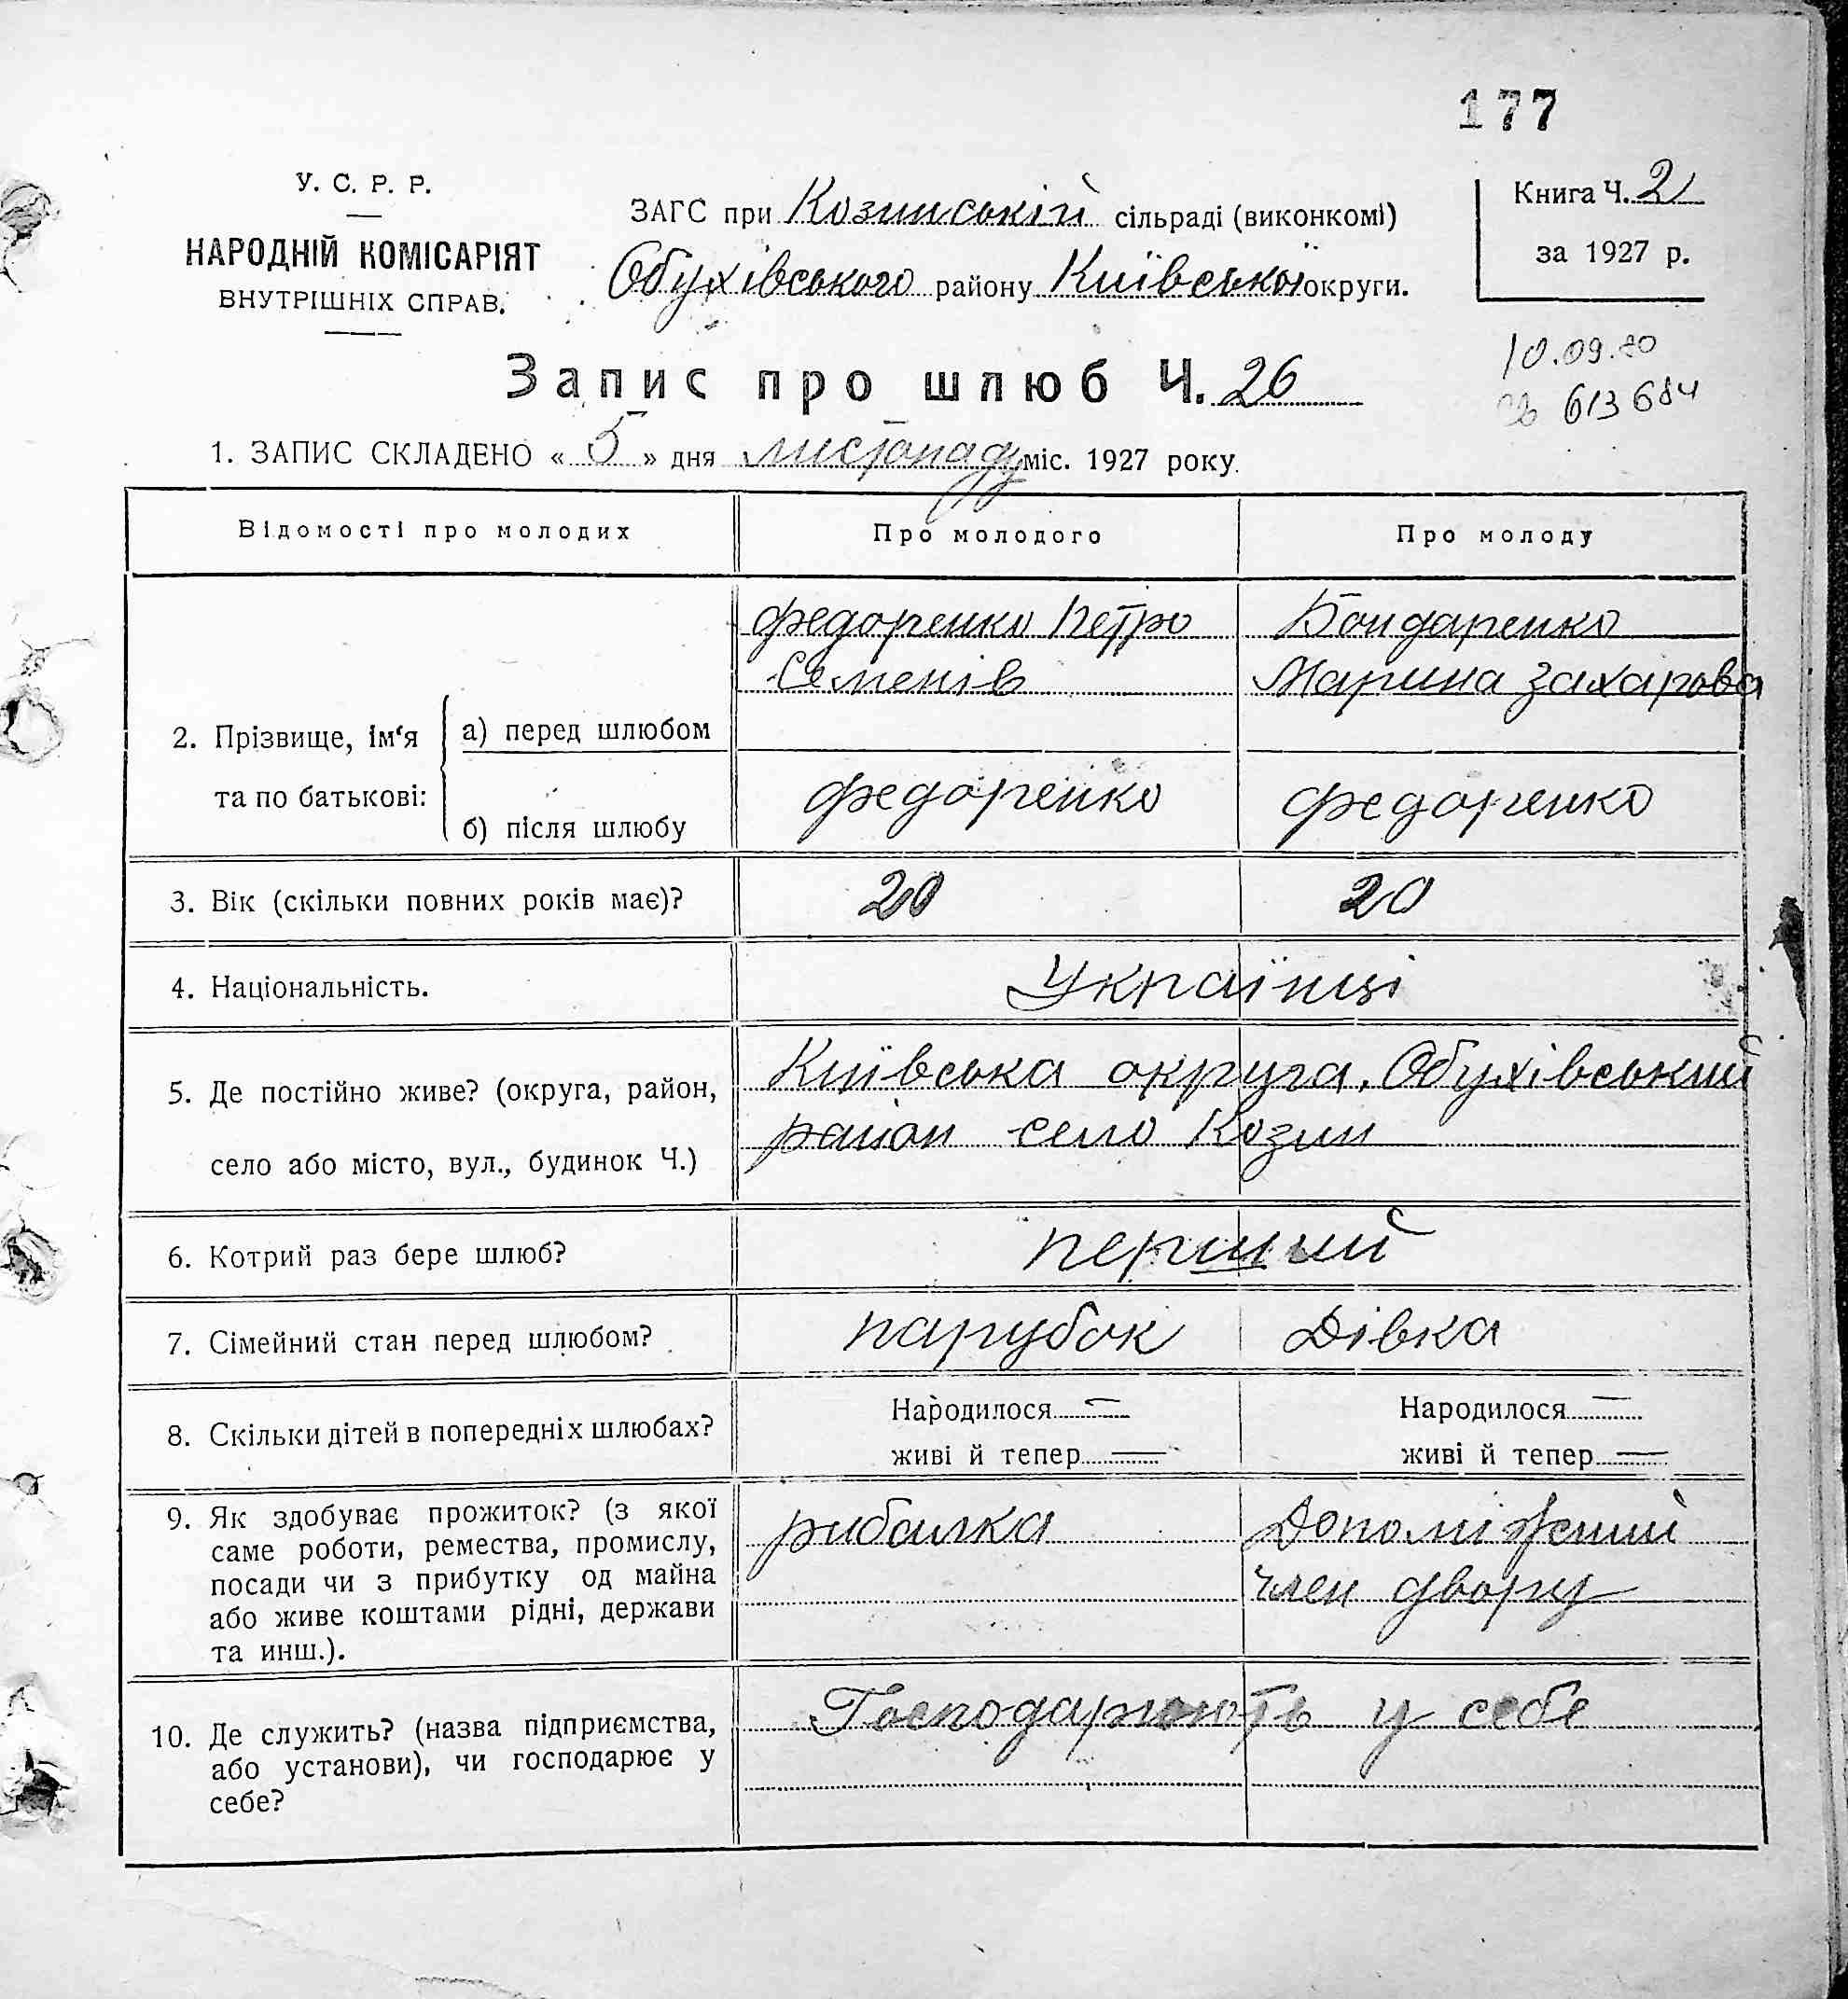 177
У. С. Р. Р.
НАРОДНІЙ КОМІСАРІЯТ
ВНУТРІШНІХ СПРАВ.
ЗАГС при Козинській сільраді (виконкомі)
Обухівського району Київської округи.
Книга Ч. 2
за 1927 р.
10.09.80
613684
Запис про шлюб Ч. 26
1. ЗАПИС СКЛАДЕНО « 5 » дня листопаду міс. 1927 року.
Відомості про молодих Про молодого Про молоду
Федоренко Петро Бондаренко
Семенів Марина Захарова
2. Прізвище, ім‘я а) перед шлюбом
та по батькові:
б) після шлюбу Федоренко Федоренко
3. Вік (скільки повних років має)? 20 20
4. Національність. Українці
5. Де постійно живе? (округа, район, Київська округа, Обухівський
район село Козин
село або місто, вул., будинок Ч.)
6. Котрий раз бере шлюб? перший
7. Сімейний стан перед шлюбом? парубок Дівка
8. Скільки дітей в попередніх шлюбах? Народилося — Народилося —
живі й тепер — живі й тепер —
9. Як здобуває прожиток? (з якої рибалка Допоміжний
саме роботи, ремества, промислу,
посади чи з прибутку од майна член двору
або живе коштами рідні, держави
та инш.).
10. Де служить? (назва підприємства, Господарюють у себе
або установи), чи господарює у
себе?